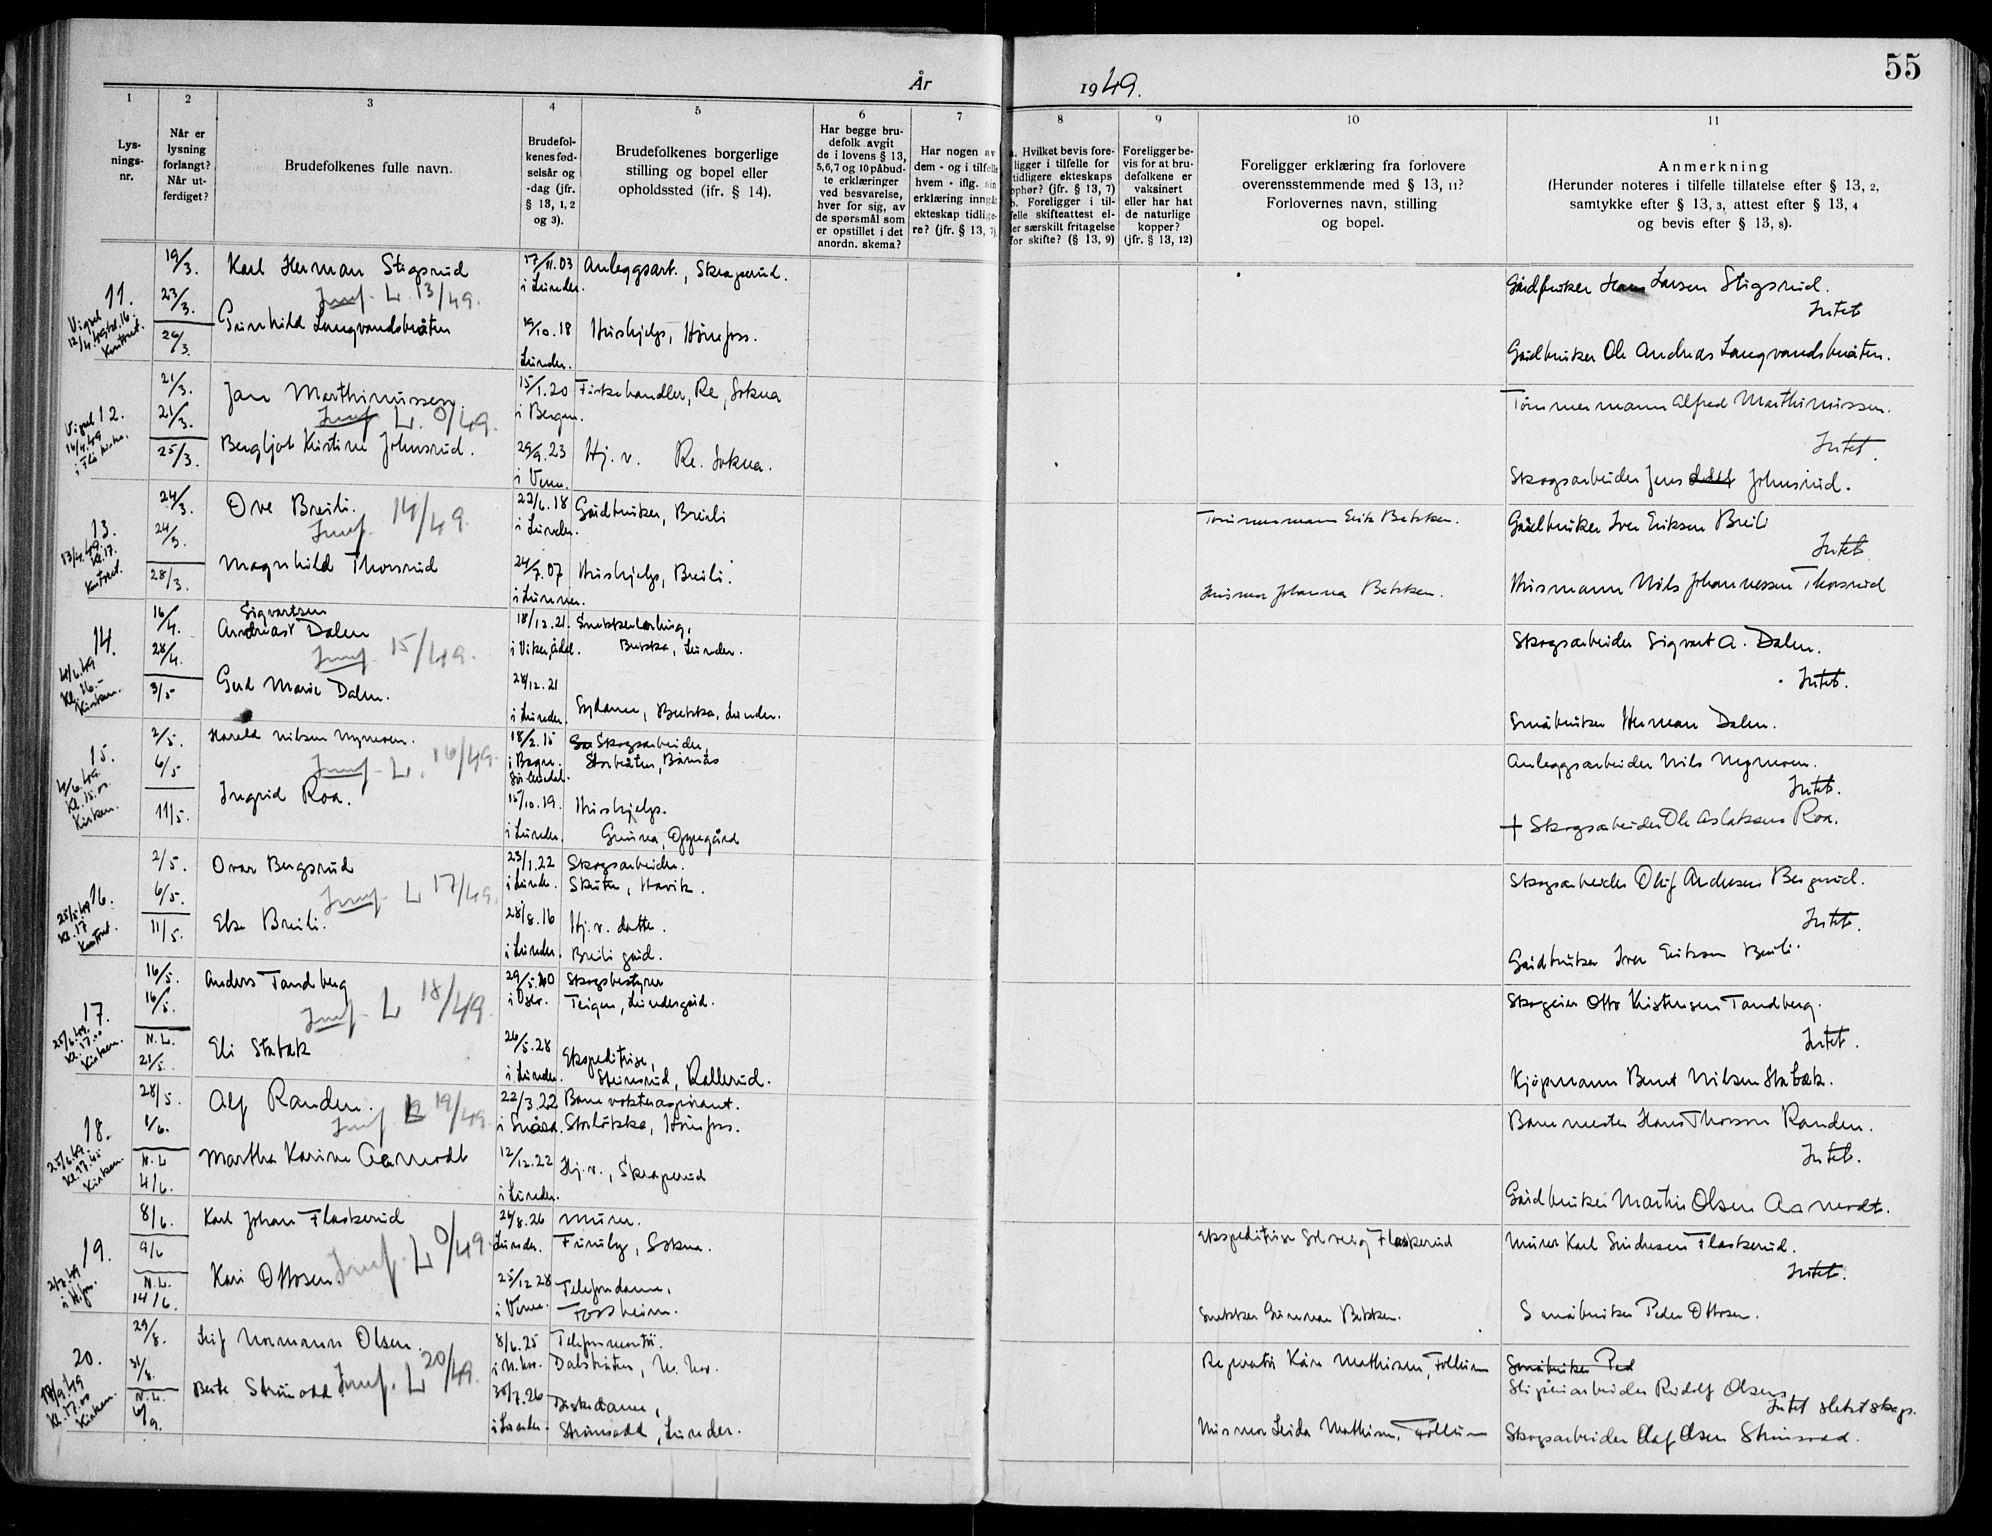 55
År 1949.
1
2
3
4
5
6
7
8
9
10
11
Lysnings-nr.
Når er lysning forlangt? Når utferdiget?
Brudefolkenes fulle navn.
Brudefolkenes fødselsår og -dag (jfr. § 13, 1, 2 og 3).
Brudefolkenes borgerlige stilling og bopel eller opholdssted (ifr. § 14).
Har begge brudefolk avgit de i lovens § 13, 5, 6, 7 og 10 påbudte erklæringer ved besvarelse, hver for sig, av de spørsmål som er opstillet i det anordn. skema?
Har nogen av dem - og i tilfelle hvem - iflg. sin erklæring inngått ekteskap tidligere? (jfr. § 13, 7)
a. Hvilket bevis foreligger i tilfelle for tidligere ekteskaps ophør? (jfr. § 13, 7) b. Foreligger i tilfelle skifteattest eller særskilt fritagelse for skifte? (§ 13, 9)
Foreligger bevis for at brudefolkene er vaksinert eller har hat de naturlige kopper? (jfr. § 13, 12)
Foreligger erklæring fra forlovere overensstemmende med § 13, 11? Forlovernes navn, stilling og bopel.
Anmerkning (Herunder noteres i tilfelle tillatelse efter § 13, 2, samtykke efter § 13, 3, attest efter § 13, 4 og bevis efter § 13, 8).
11.
Vigsel 12/4.49 kl.16. Kontoret.
19/3. 23/3. 26/3.
Karl Herman Stigsrud
L. 13/49.
17/11.03 i Lunder.
Anleggsarb., Skraperud.
Gårdbruker Hans Larsen Stigsrud.
Intet
Gunhild Langvandsbråten
19/10.18 Lunder.
Hushjelp, Hønefoss.
Gårdbruker Ole Andreas Langvandsbråten.
12.
Vigsel 16/4.49 i Flå kirke.
21/3. 21/3. 25/3.
Jan Marthinussen
L. 0/49.
15/1.20 i Bergen.
Fiskehandler, Re, Sokna
Tømmermann Alfred Marthinussen.
Intet.
Bergljot Kristine Johnsrud.
29/9.23 i Veme.
Hj. v. Re. Sokna.
Skogsarbeider Jens Johnsrud.
13.
13/4.49. kl.17. Kontoret.
24/3. 24/3. 28/3.
Ove Breili.
14/49.
22/6.18 i Lunder.
Gårdbruker, Breili
Tømmermann Erik Bekken.
Gårdbruker Iver Eriksen Breili
Intet.
Magnhild Thorsrud
24/7.07 i Lunner.
Hushjelp, Breili.
Husmor Johanna Bekken.
Husmann Nils Johannessen Thorsrud
14.
4/6.49 kl. 16.- Kirken.
16/4. 28/4. 3/5
Sigvartsen
Andreas Dalen
15/49.
18/12.21. i Viker, ådal.
Snekkerlærling, Bekka, Lunder.
Skogsarbeider Sigvart A. Dalen.
Intet.
Gerd Marie Dalen.
24/12.21 i Lunder.
Sydame, Bekka, Lunder.
Småbruker Herman Dalen.
15.
4/6.49. kl.15.00. Kirken.
2/5. 6/5 11/5.
Harald Nilsen Nymoen.
L. 16/49.
18/2.15 i Bagn. Sør-Aurdal.
Skogsarbeider, Storbråten, Bårnås
Anleggsarbeider Nils Nymoen.
Intet.
Ingrid Roa.
15/10.19. i Lunder.
Hushjelp. Oppegård
+ Skogsarbeider Ole Aslaksen Roa.
16.
25/5.49 kl.17 Kontoret.
2/5. 6/5. 11/5.
Ovar Bergsrud
L 17/49.
23/1.22 i Lunder.
Skogsarbeider. Skuten, Havik.
Skogsarbeider Oluf Andersen Bergsrud.
Intet.
Else Breili.
28/8.16 i Lunder.
Hj. v. datter. Breili gård.
Gårdbruker Iver Eriksen Breili.
17.
25/6.49. kl.17.00 Kirken.
16/5. 16/5. N.L. 21/5.
Anders Tandberg
L 18/49.
29/5.20 i Oslo.
Skogbestyrer Teigen, Lundesgård.
Skogeier Otto Kristensen Tandberg.
Intet.
Eli Stabæk
26/5.28 i Lunder.
Ekspeditrise, Steinsrud, Rallerud.
Kjøpmann Bernt Nilsen Stabæk.
18.
25/6.49. kl.17.45 Kirken.
28/5. 1/6. N.L 4/6.
Alf Randen.
L 19/49.
22/3.22 i Snåsa.
Banevokteraspirant. Storløkka, Hønefoss.
Banemester Hans Thorson Randen.
Intet.
Martha Karine Aamodt
12/12.22 i Lunder.
Hj. v., Skraperud
Gårdbruker Martin Olsen Aamodt.
19.
2/7.49 i H.fos.
8/6. 9/6 N.L. 14/6.
Karl Johan Flaskerud
L 0/49.
26/8.26 Lunder.
Murer. Furuly, Sokna.
Ekspeditrise Solveig Flaskerud
Murer Karl Sindresen Flaskerud.
Intet.
Kari Ottosen.
25/12 28 i Veme.
Telefondame, Fossheim.
Snekker Gunnar Bekken.
Småbruker Peder Ottosen.
20.
17/9.49 kl. 17.00 Kirken.
29/8. 31/8. N.L. 6/9.
Leif Normann Olsen.
L 20/49.
8/6.25 i N.hov.
Telefonmontør. Dalsbråten, N. hov.
Reparatør Kåre Mathisen, Follum
Småbruker Ped
Sliperiarbeider Rudolf Olsen,
Intet slektskap.
Berte Strømsodd.
30/7.26 i Lunder.
Diskedame, Strømsodd, Lunder.
Husmor Leida Mathisen, Follum
Skogsarbeider Olaf Olsen Strømsodd.